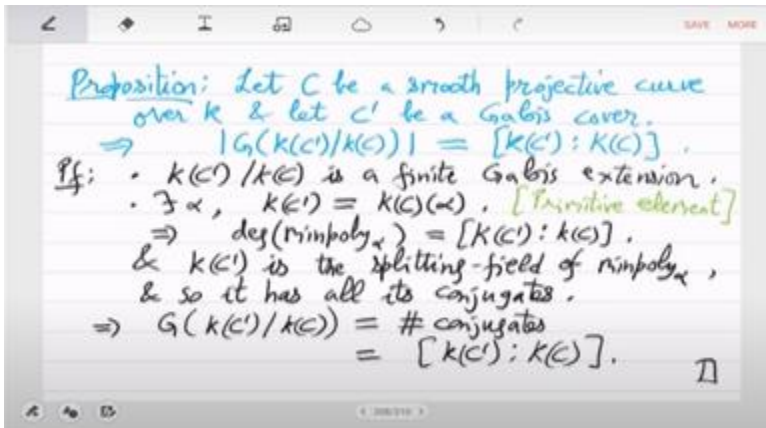 SAVE MORE
Proposition: Let C be a smooth projective curve
over k & let C' be a Galois cover.
⇒ |G(k(C')/k(C))| = [k(C') : k(C)] .
Pf: · k(C')/k(C) is a finite Galois extension.
· ∃ α, k(C') = k(C)(α) . [Primitive element]
⇒ deg(minpoly_α) = [k(C') : k(C)] .
& k(C') is the splitting-field of minpoly_α ,
& so it has all its conjugates.
⇒ G(k(C')/k(C)) = # conjugates
= [k(C') : k(C)].